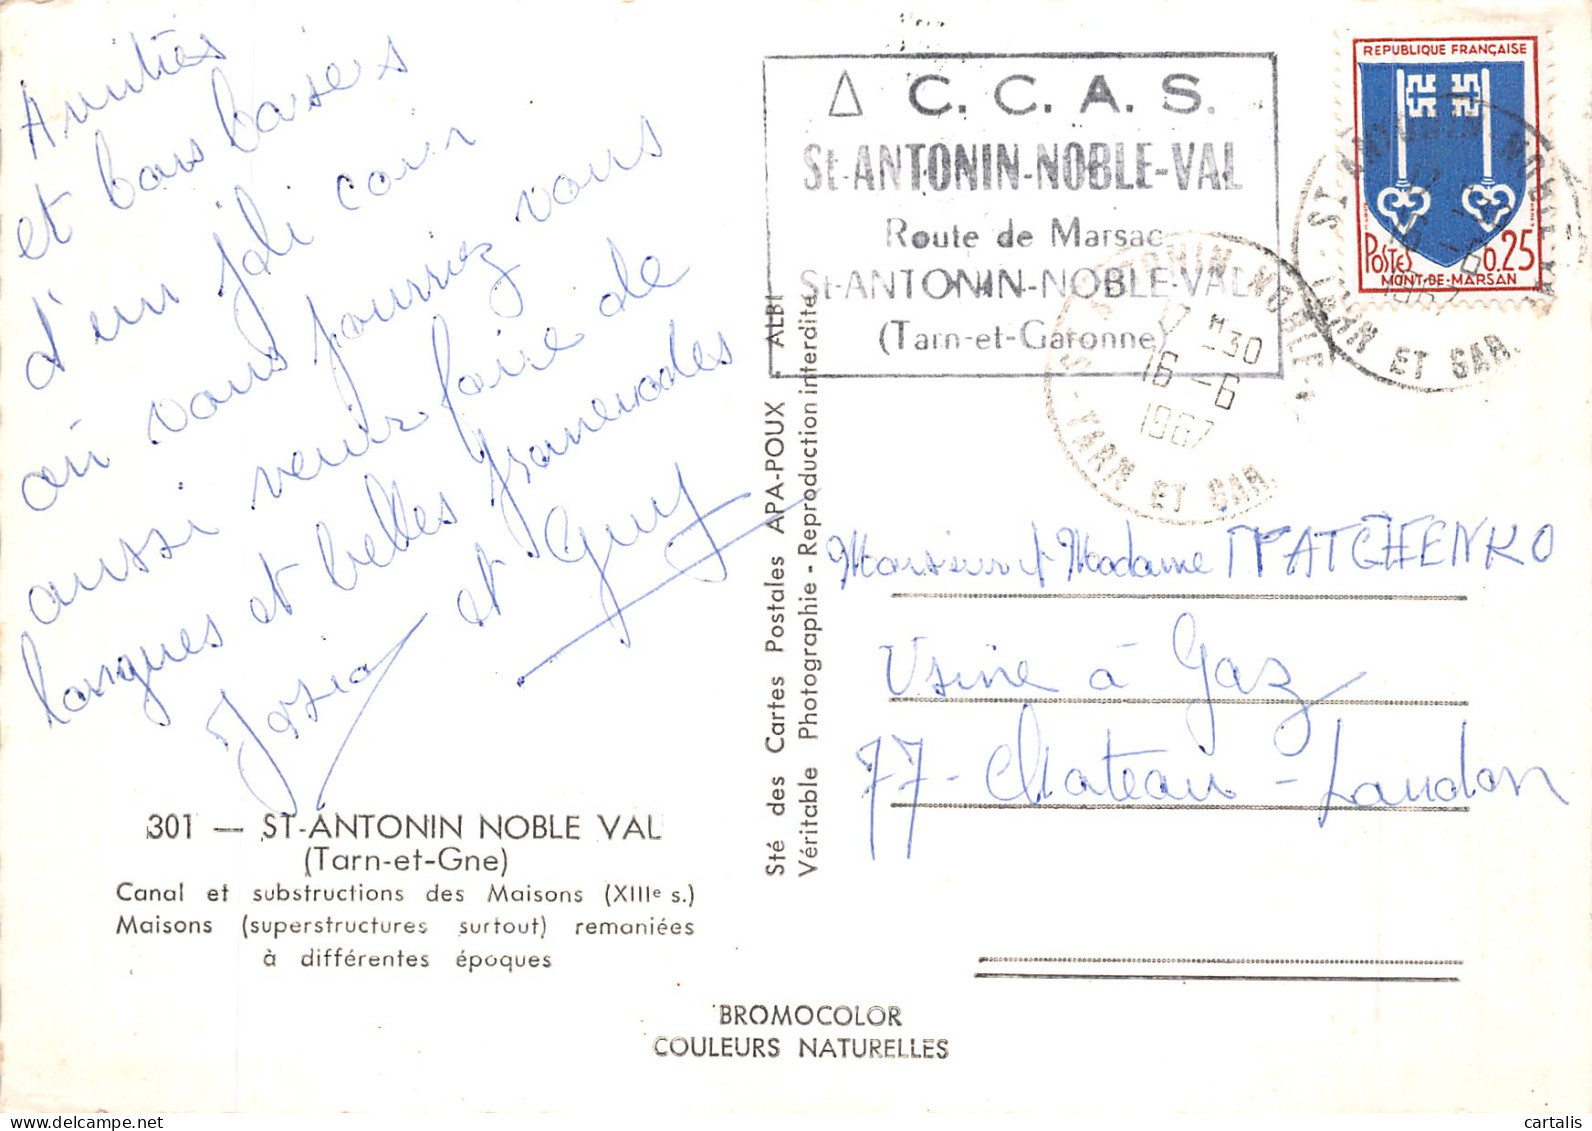 Amitiés
et bons baisers
d'un joli coin
où vous pourriez vous
aussi venir faire de
longues et belles promenades
Josia et Guy
301 — ST-ANTONIN NOBLE VAL
(Tarn-et-Gne)
Canal et substructions des Maisons (XIIIe s.)
Maisons (superstructures surtout) remaniées
à différentes époques
BROMOCOLOR
COULEURS NATURELLES
Sté des Cartes Postales APA-POUX - ALBI
Véritable Photographie - Reproduction interdite
Δ C. C. A. S.
St-ANTONIN-NOBLE-VAL
Route de Marsac
St-ANTONIN-NOBLE-VAL
(Tarn-et-Garonne)
ST ANTONIN-NOBLE-VAL
17 H 30
16 - 6
1967
TARN ET GAR.
REPUBLIQUE FRANÇAISE
POSTES 0,25
MONT-DE-MARSAN
ST ANTONIN NOBLE VAL
1967
TARN ET GAR.
Monsieur et Madame ITATCHENKO
Usine à Gaz
77 - Chateau - Landon
cartalis